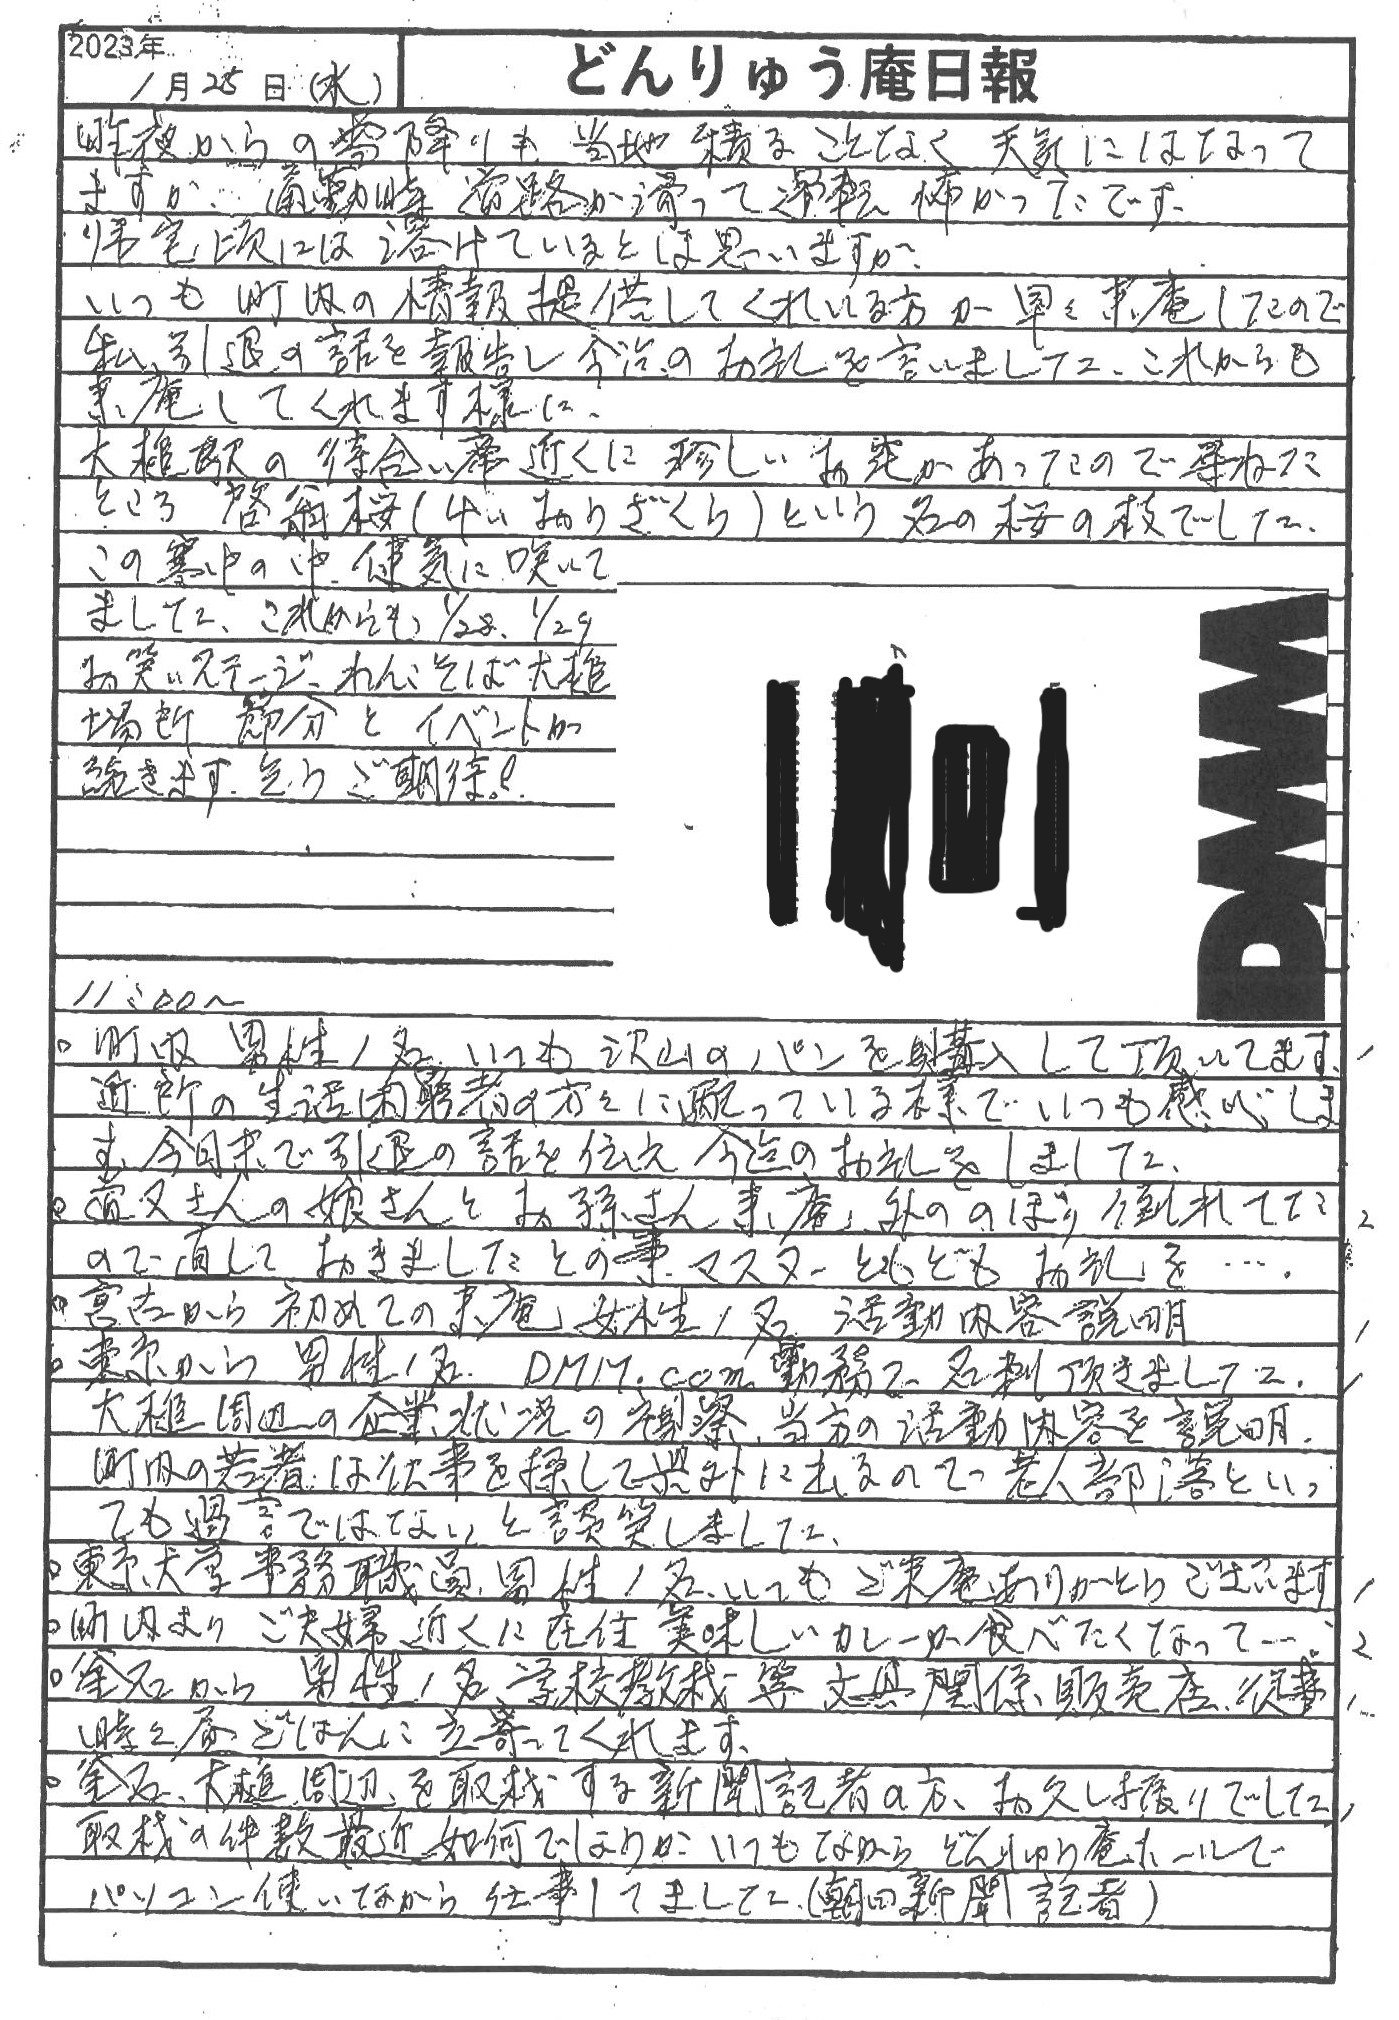 2023年
1月25日(水)
どんりゅう庵日報
昨夜からの雪降りも 当地 積ることなく 天気にはなって
ますが、通勤時 道路が滑って運転 怖かったです。
帰宅頃には溶けているとは思いますが、
いつも 町内の情報提供してくれいる方が 早々来庵したので
私、引退の話を報告し今迄のお礼を言いました、これからも
来庵してくれます様に、
大槌駅の待合い席近くに珍しいお花があったので尋ねた
ところ 啓翁桜(けいおうざくら)という名の桜の枝でした、
この寒中の中、健気に咲いて
ました、これからも、1/28、1/29
お笑いステージ、わんこそば大槌
場所 節分とイベントが
続きます。乞うご期待!
DMM
11:00～
。町内 男性1名、いつも沢山のパンを購入して頂いてます、 1
近所の生活困窮者の方々に配っている様で いつも感心しま
す、今日来で引退の話を伝え 今迄のお礼をしました、
さんの娘さんとお孫さん来庵、外ののぼり倒れてた 2
ので直しておきましたとの事 マスターともどもお礼を…．
。宮古から初めての来庵、女性1名 活動内容説明 1
。東京から 男性1名 DMM.com勤務で名刺頂きました、 1
大槌周辺の企業状況の視察、当方の活動内容を説明、
町内の若者は仕事を探して県外に出るので 老人部落といっ
ても過言ではない、と談笑しました、
。東京大学事務職員、男性1名、いつもご来庵ありがとうございます 1
。町内より ご夫婦 近くに在住 美味しいカレーが食べたくなって…． 2
。釜石から 男性1名 学校教材、等 文具関係、販売店、従事 1
時々昼ごはんに立寄ってくれます、
。釜石、大槌周辺を取材する新聞記者の方、お久し振りでした、 1
取材の件数最近如何でしょうか いつもながら どんりゅう庵ホールで
パソコン使いながら仕事してました、(朝日新聞記者)